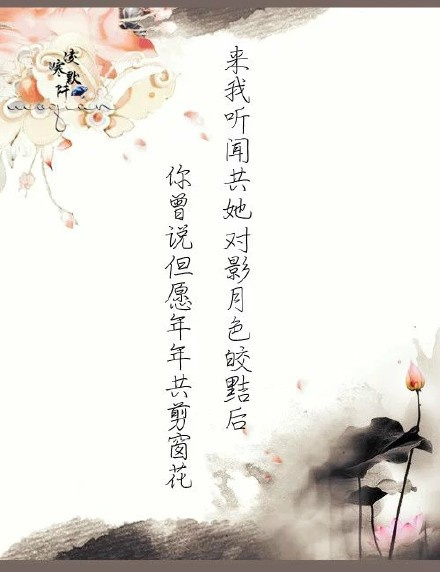 来我听闻共她对影月色皎黠后
你曾说但愿年年共剪窗花
凌默
寒阡
moqian